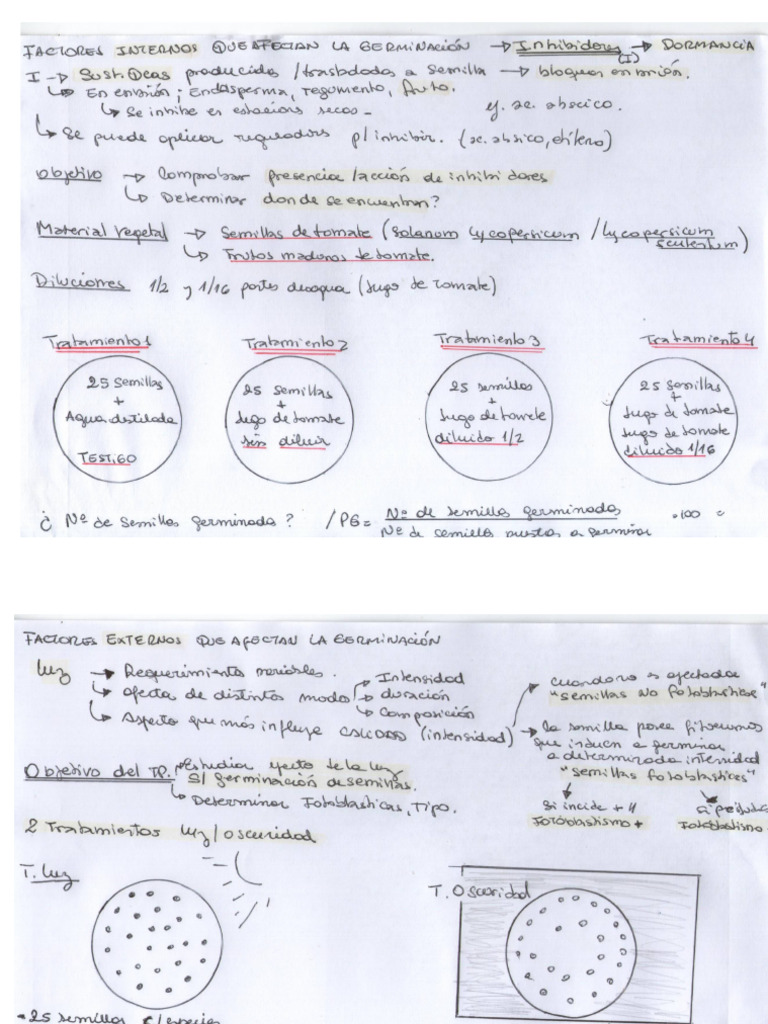 FACTORES INTERNOS QUE AFECTAN LA GERMINACIÓN → Inhibidores (I) → DORMANCIA
I → Sust. Qcas producidas / trasladadas a semilla → bloquea embrión.
↳ En embrión; Endosperma, tegumento, fruto.
↳ Se inhibe en estaciones secas - ej. ac. abscico.
↳ Se puede aplicar reguladores p/ inhibir. (ac. absico, etileno)
Objetivo → Comprobar presencia / acción de inhibidores
↳ Determinar donde se encuentran?
Material vegetal → Semillas de tomate (Solanum lycopersicum / lycopersicum esculentum)
↳ Frutos maduros de tomate.
Diluciones 1/2 y 1/16 partes de agua (Jugo de tomate)
Tratamiento 1 Tratamiento 2 Tratamiento 3 Tratamiento 4
25 semillas + Agua destilada TESTIGO
25 semillas + Jugo de tomate sin diluir
25 semillas + Jugo de tomate diluido 1/2
25 semillas + Jugo de tomate Jugo de tomate diluido 1/16
¿ Nº de semillas germinadas? / PG = Nº de semillas germinadas .100 =
Nº de semillas puestas a germinar
FACTORES EXTERNOS QUE AFECTAN LA GERMINACIÓN
luz → Requerimientos variables.
↳ afecta de distintos modos → Intensidad
→ duración
↳ Composición
↳ Aspecto que más influye CALIDAD (intensidad)
cuando no es afectada "semillas NO fotoblásticas"
la semilla posee fitocromos que inducen a germinar a determinada intensidad "semillas fotoblásticas"
Si incide + Fotoblastismo +
Fotoblastismo
Objetivo del TP. → estudiar efecto de la luz S/ germinación de semillas.
↳ Determinar Fotoblasticas, Tipo.
2 Tratamientos luz / oscuridad
T. luz
T. Oscuridad
- 25 semillas c/ especies